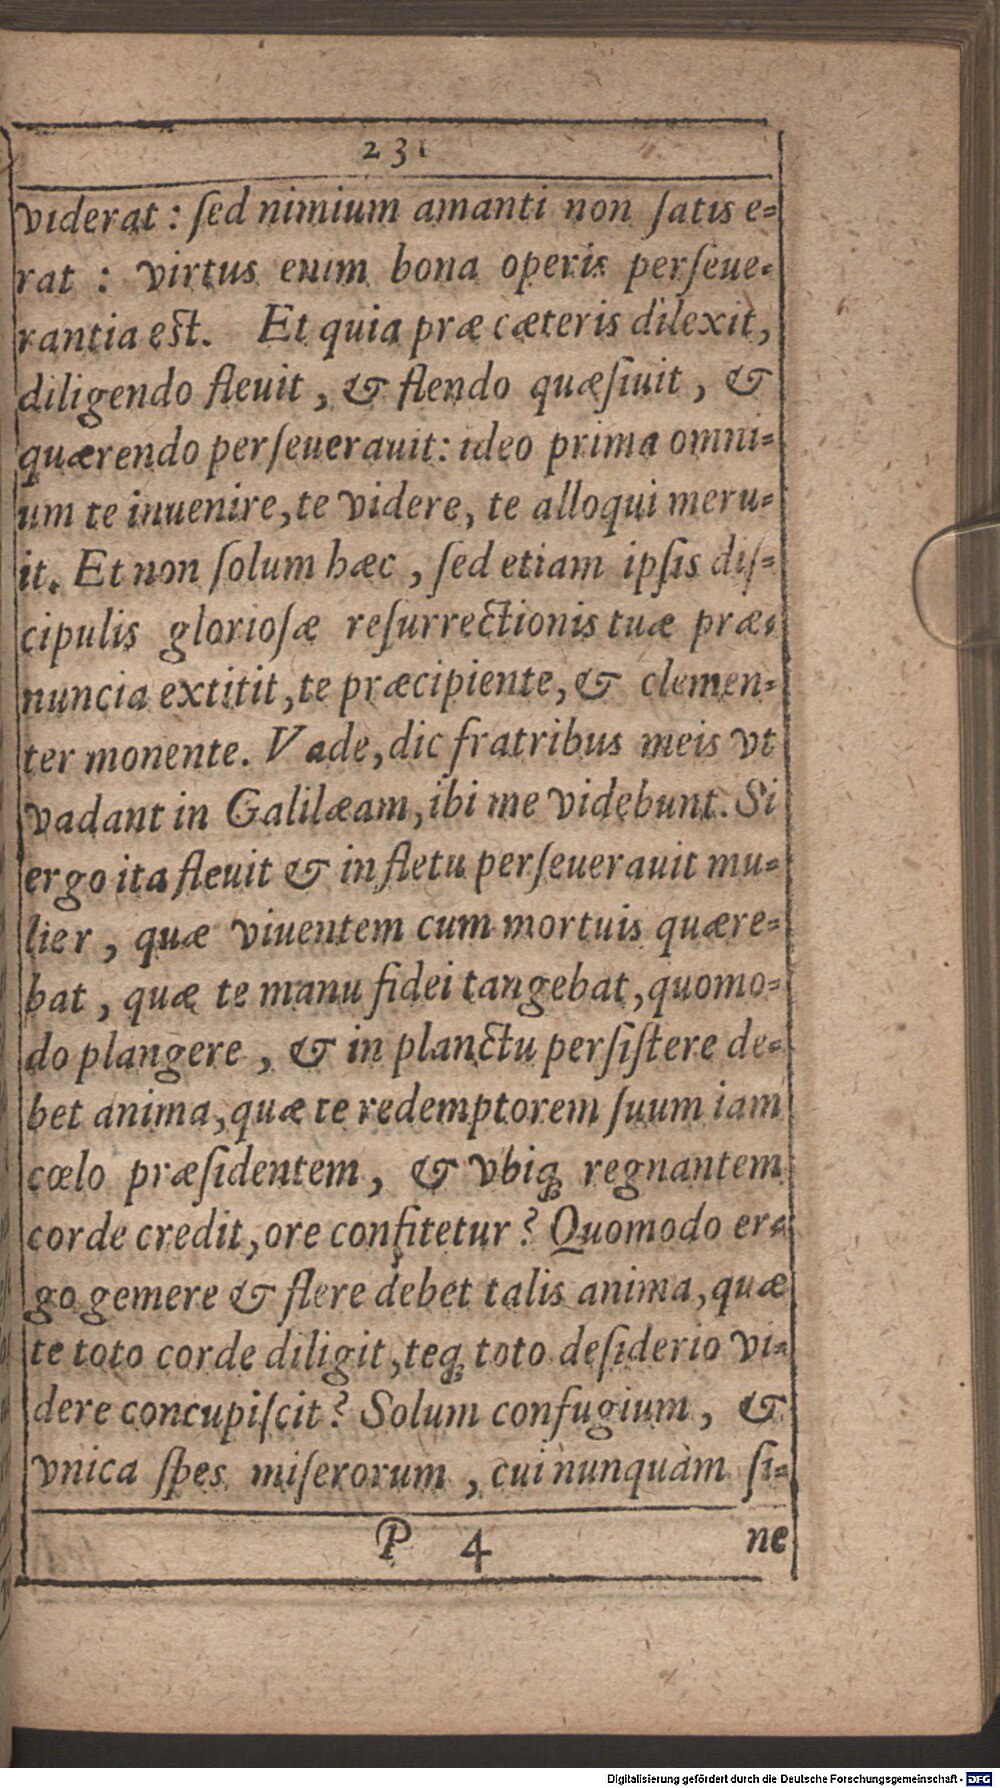 231
viderat : ſed nimium amanti non ſatis e-
rat : virtus enim bona operis perſeue-
rantia eſt. Et quia præ cæteris dilexit,
diligendo fleuit, & flendo quæſiuit, &
quærendo perſeuerauit: ideo prima omni-
um te inuenire, te videre, te alloqui meru-
it. Et non ſolum hæc, ſed etiam ipſis diſ-
cipulis glorioſæ reſurrectionis tuæ præ-
nuncia extitit, te præcipiente, & clemen-
ter monente. Vade, dic fratribus meis vt
vadant in Galilæam, ibi me videbunt. Si
ergo ita fleuit & in fletu perſeuerauit mu-
lier, quæ viuentem cum mortuis quære-
bat, quæ te manu fidei tangebat, quomo-
do plangere, & in planctu perſiſtere de-
bet anima, quæ te redemptorem ſuum iam
cœlo præſidentem, & vbiq; regnantem
corde credit, ore confitetur? Quomodo er-
go gemere & flere debet talis anima, quæ
te toto corde diligit, teq; toto deſiderio vi-
dere concupiſcit? Solum confugium, &
vnica ſpes miſerorum, cui nunquàm ſi-
P 4 ne
Digitalisierung gefördert durch die Deutsche Forschungsgemeinschaft - DFG